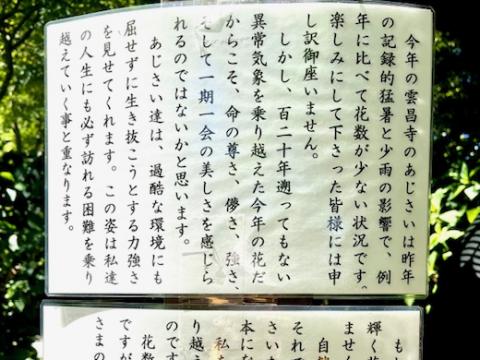 今年の雲昌寺のあじさいは昨年
の記録的猛暑と少雨の影響で、例
年に比べて花数が少ない状況です。
楽しみにして下さった皆様には申
し訳御座いません。
しかし、百二十年遡ってもない
異常気象を乗り越えた今年の花だ
からこそ、命の尊さ、儚さ、強さ、
そして一期一会の美しさを感じら
れるのではないかと思います。
あじさい達は、過酷な環境にも
屈せずに生き抜こうとする力強さ
を見せてくれます。この姿は私達
の人生にも必ず訪れる困難を乗り
越えていく事と重なります。
も
輝く花
ませ
自然
それで
さいた
本にな
私た
り越え
のです
花数
ですが
さまの